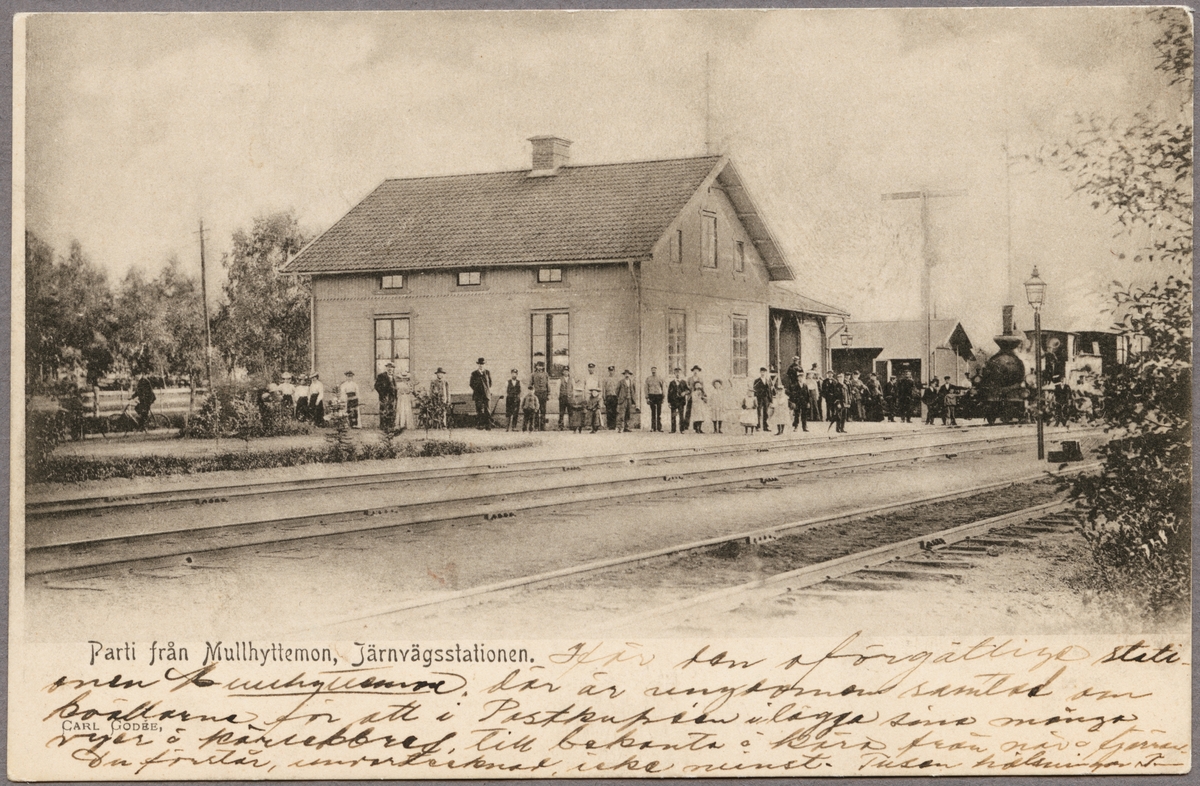 Parti från Mullhyttemon, Järnvägsstationen. Här den oförgätlige stati-
onen Mullhyttemon. där är ungdomen samlad om
kvällarne, för att i Postkupéen ilägga sina många
CARL GODÉE,
vyer & kärleksbref, till bekanta & kära från när o fjärran.
Du förstår, undertecknad, icke minst. Tusen hälsningar